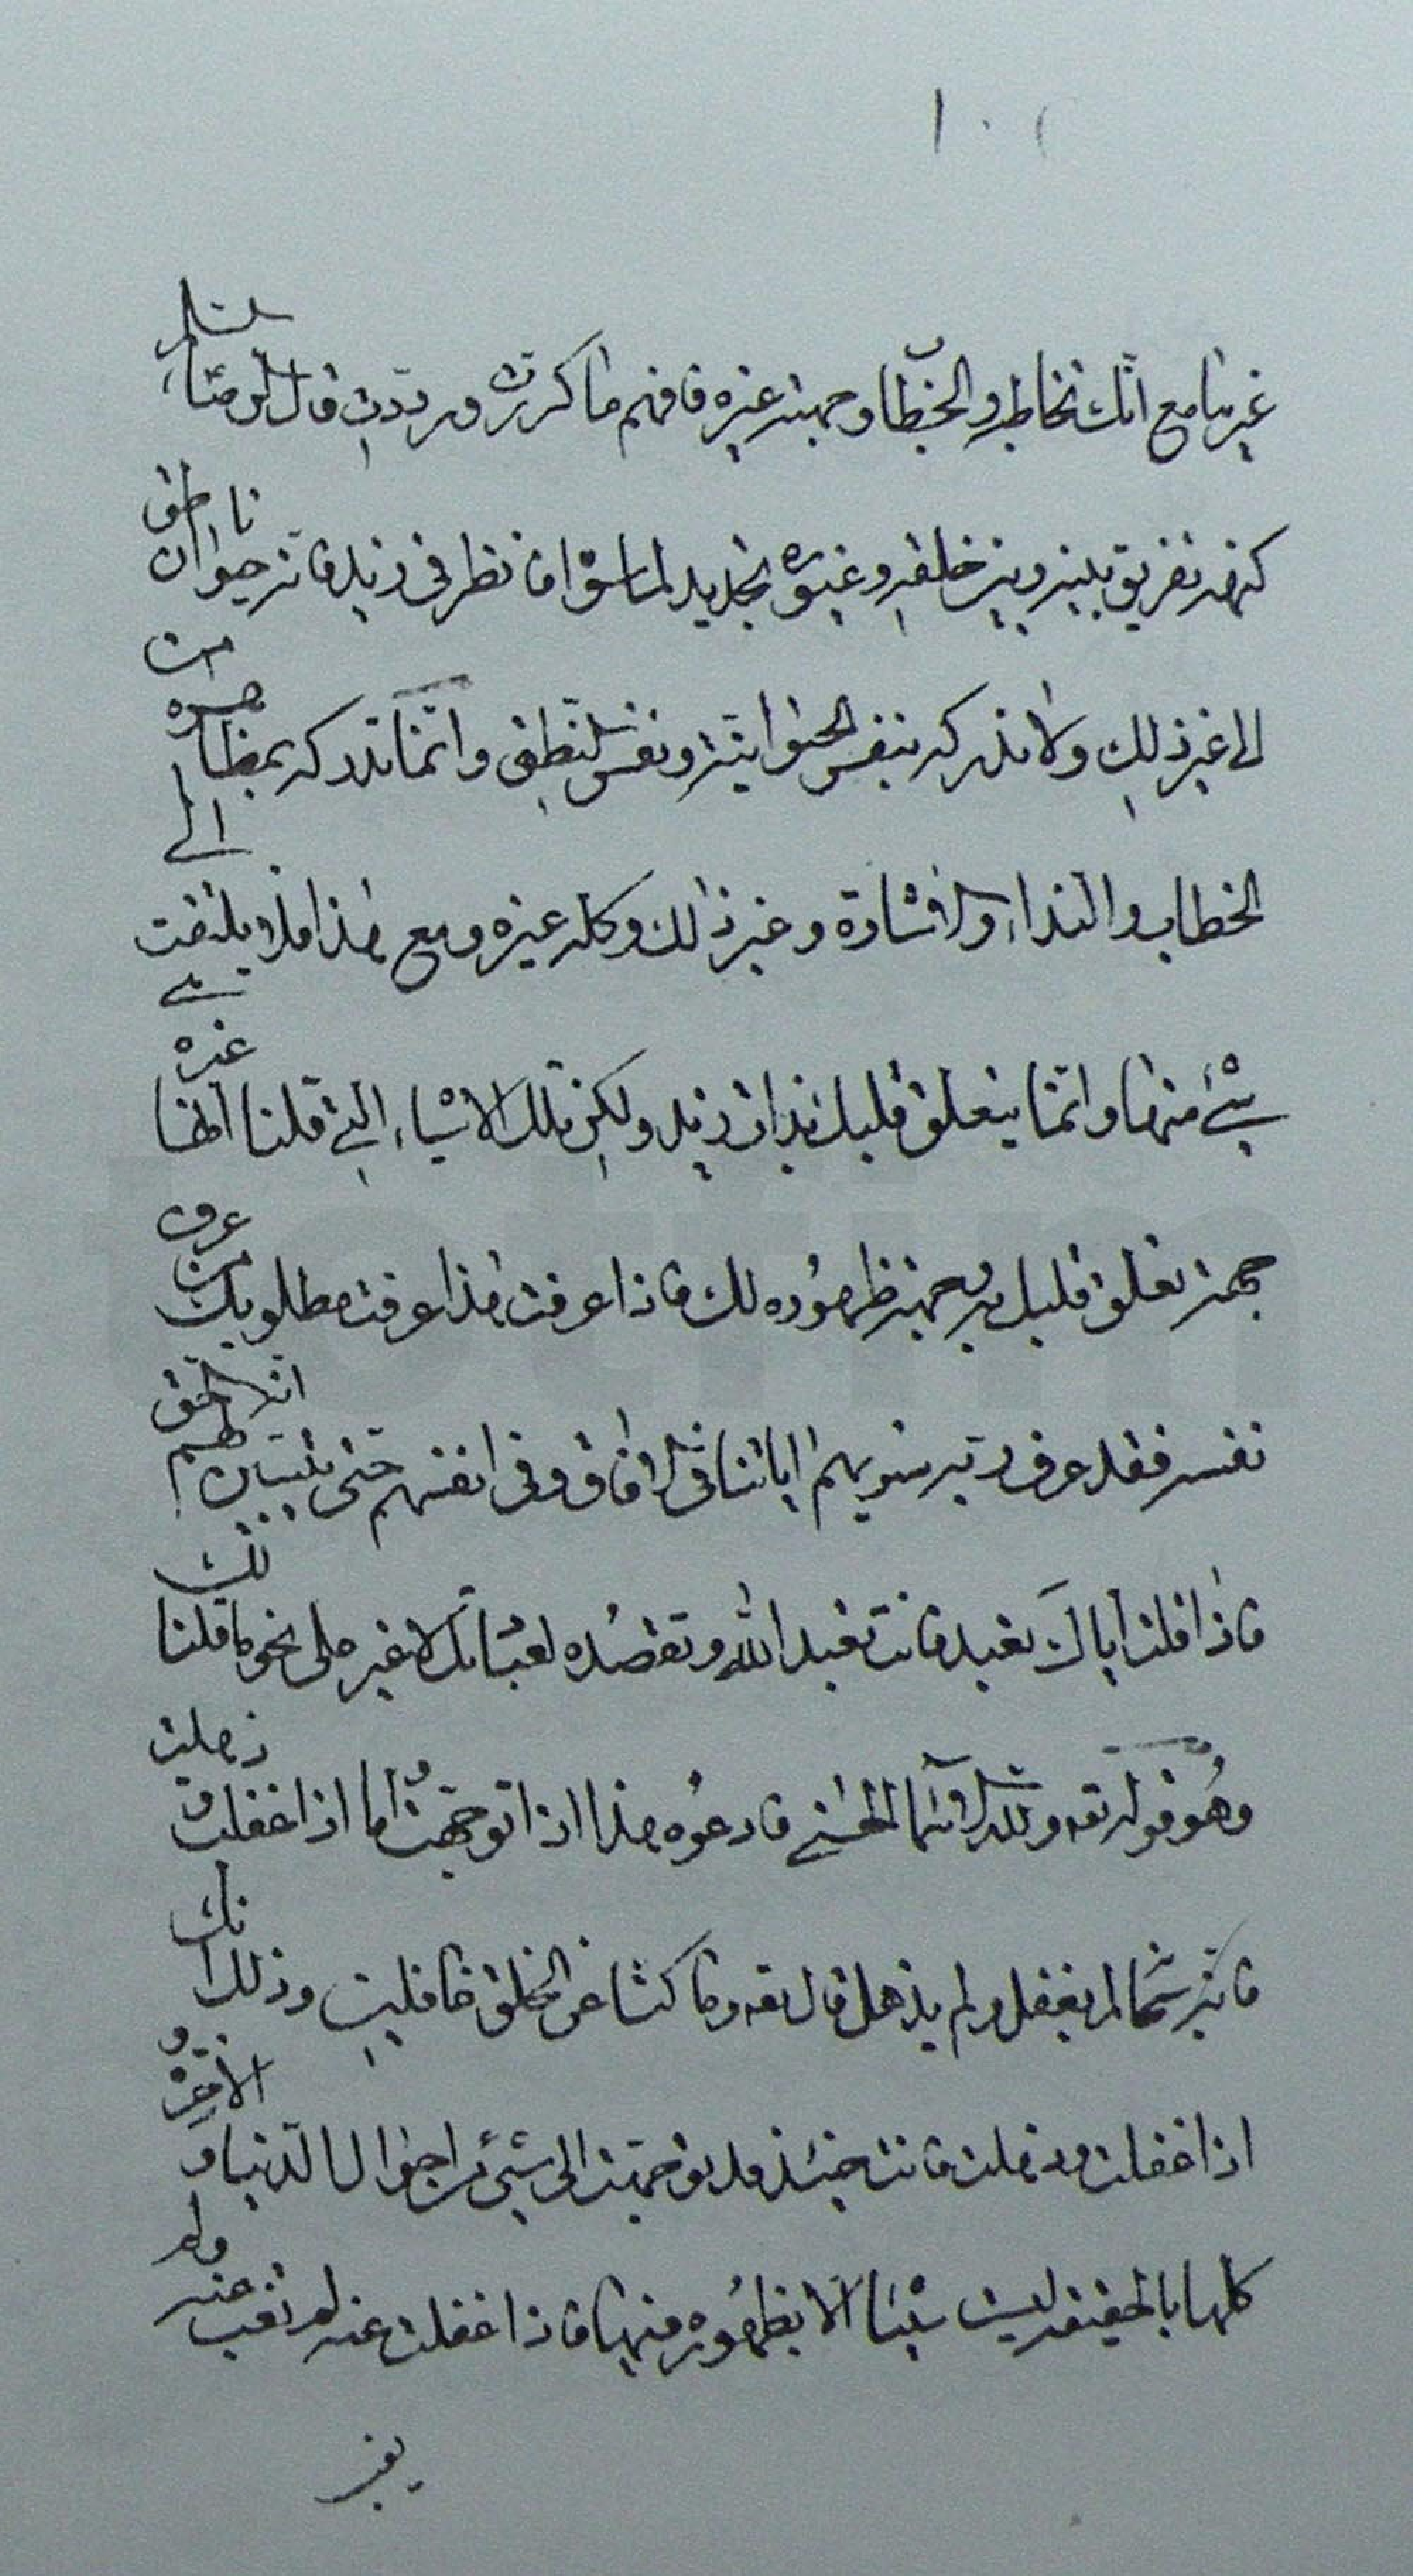 ١٠
غيرنا مع انّك تخاطبه والخطاب وجهته غيره فافهم ما كررت ورددت قال الرضا عليه السلم
كنهه تفريق بينه وبين خلقه وغيوره تحديد لما سواه فانظر في زيد فانه حيوان ناطق
الى غير ذلك ولا تدركه بنفس الحيوانية ونفس النطق وانما تدركه بمظاهره من
الخطاب والنداء والاشارة وغير ذلك وكله غيره ومع هذا فلا يلتفت الى
شيء منها وانما يتعلق قلبك بذات زيد ولكن تلك الاشياء التي قلنا انها غيره هي
جهة تعلق قلبك به وجهة ظهوره لك فاذا عرفت هذا عرفت مطلوبك من عرف
نفسه فقد عرف ربه سنريهم اياتنا في الافاق وفي انفسهم حتى يتبين لهم انه الحق
فاذا قلت اياك نعبد فانت تعبد الله وتقصده لعبادتك لا غير على نحو ما قلنا لك
وهو قوله تعه ولله الاسماء الحسنى فادعوه بها هذا اذا توجهت اما اذا غفلت وذهلت
فانه سبحانه لم يغفل ولم يذهل قال تعه وما كنا عن الخلق غافلين وذلك انك
اذا غفلت وذهلت فانت حينئذ قد توجهت الى شيء من احوال الدنيا والاخرة و
كلها بالحقيقة ليست شيئا الا بظهوره منها فاذا غفلت عنه لم تغب عنه ولم
يغب